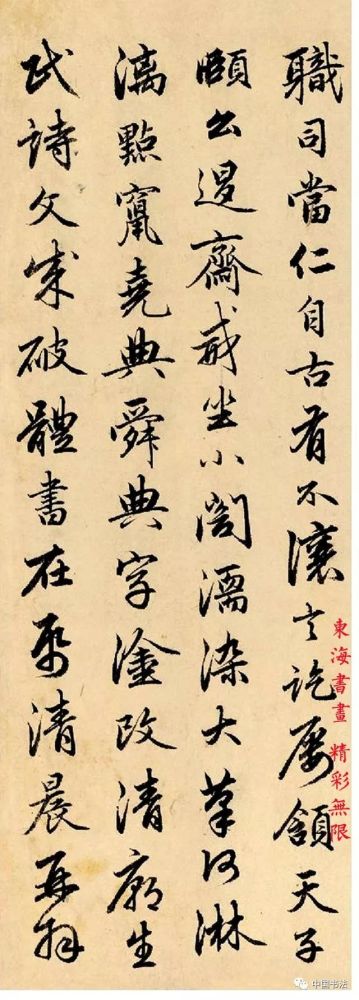 職司當仁自古有不讓言訖屢頷天子
頤公退齋戒坐小閤濡染大筆何淋
漓點竄堯典舜典字塗改清廟生
民詩文成破體書在紙清晨再拜
東海書畫 精彩無限
中国书法